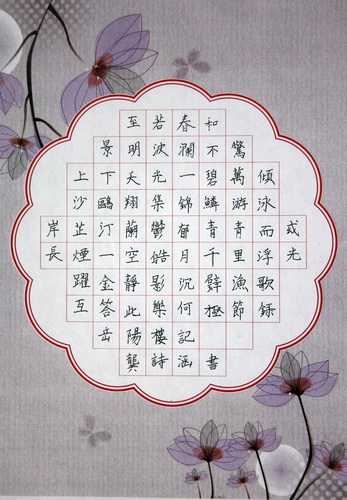 至若春和
景明波瀾不驚
上下天光一碧萬傾
沙鷗翔集錦鱗游泳
岸芷汀蘭鬱郁青青而或
長煙一空皓月千里浮光
躍金靜影沉璧漁歌
互答此樂何極節錄
岳陽樓記
龔詩涵書